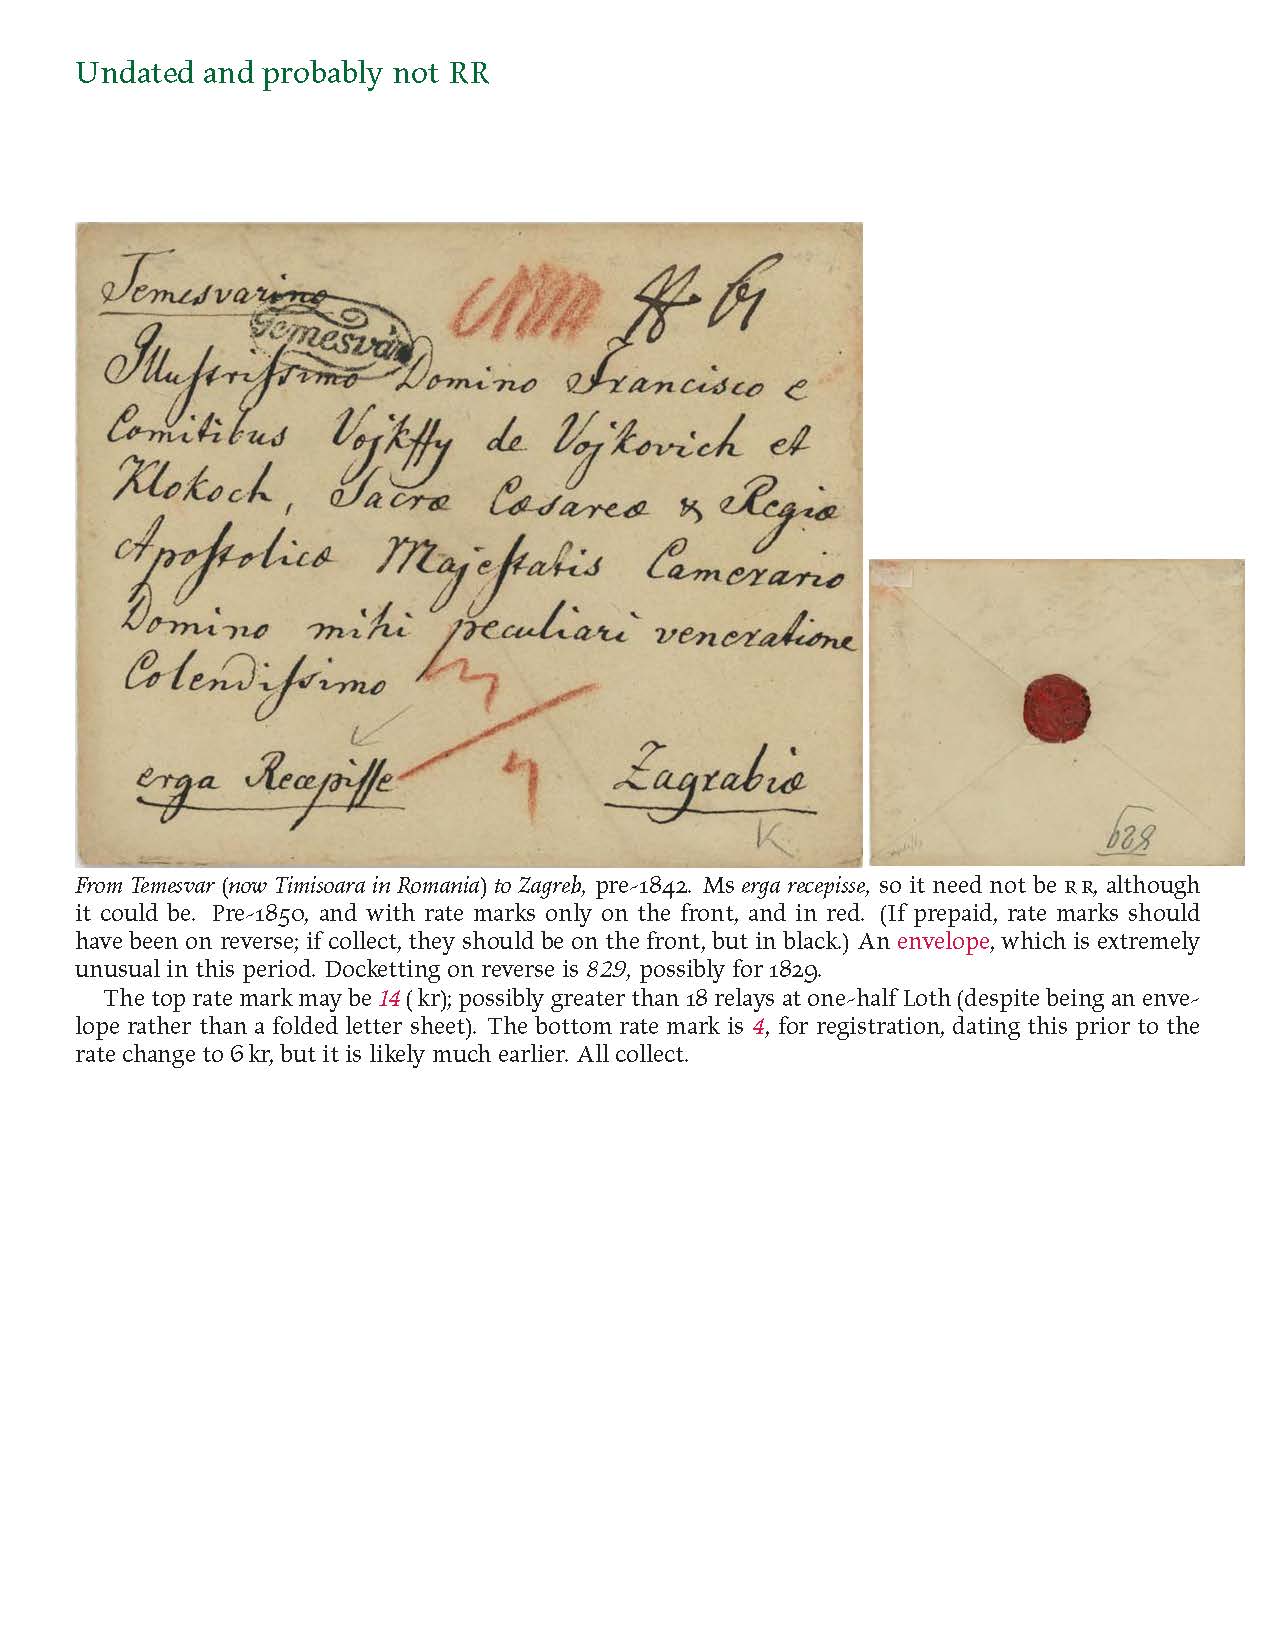 Undated and probably not RR
Temesvarino
Temesvàr
Illustrissimo Domino Francisco e
Comitibus Vojkffy de Vojkovich et
Klokoch, Sacræ Cæsareæ & Regiæ
Apostolicæ Majestatis Camerario
Domino mihi peculiari veneratione
Colendissimo
erga Recepisse
Zagrabiæ
K.
829
From Temesvar (now Timisoara in Romania) to Zagreb, pre-1842. Ms erga recepisse, so it need not be RR, although
it could be. Pre-1850, and with rate marks only on the front, and in red. (If prepaid, rate marks should
have been on reverse; if collect, they should be on the front, but in black.) An envelope, which is extremely
unusual in this period. Docketting on reverse is 829, possibly for 1829.
The top rate mark may be 14 ( kr); possibly greater than 18 relays at one-half Loth (despite being an enve-
lope rather than a folded letter sheet). The bottom rate mark is 4, for registration, dating this prior to the
rate change to 6 kr, but it is likely much earlier. All collect.